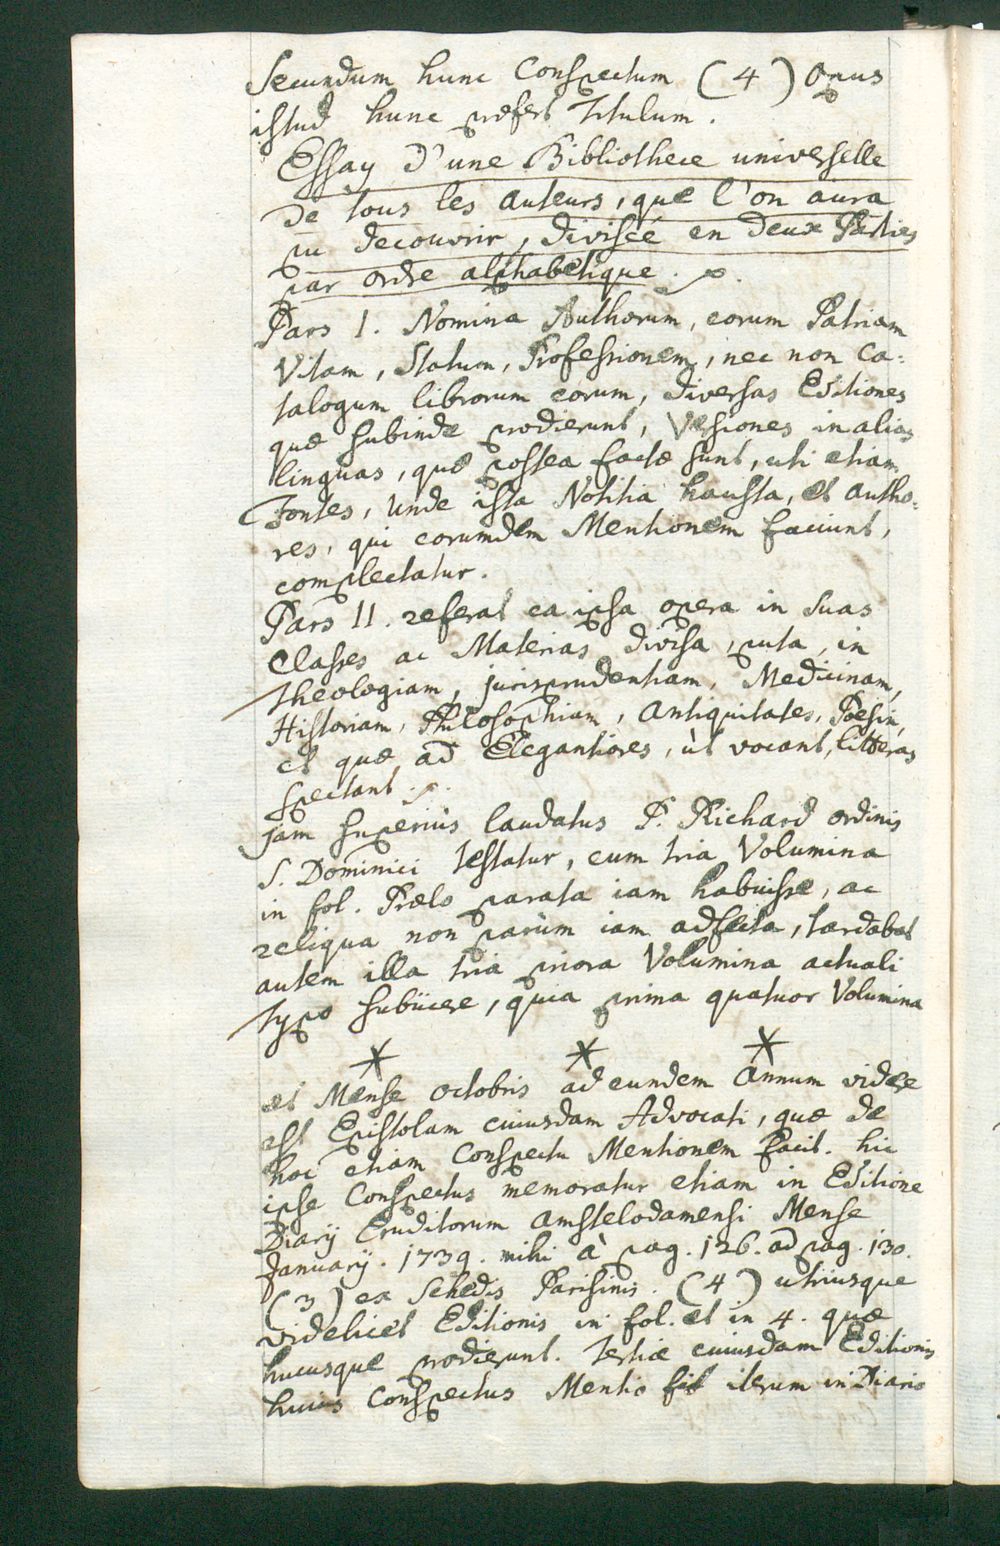 Secundum hunc Conspectum (4) Opus
istud hunc præfert Titulum.
Essay d'une Bibliothece universelle
de tous les auteurs, que l'on aura
pu decouvrir, diviseé en deux Parties
par ordre alphabetique.
Pars I. Nomina Authorum, eorum Patriam
Vitam, Statum, Professionem, nec non Ca:
talogum librorum eorum, diversas Editiones
quæ subinde prodierunt, Versiones in alias
linguas, quæ postea factæ sunt, uti etiam
Fontes, unde ista Notitia hausta, et autho:
res, qui eorumdem Mentionem faciunt,
complectatur.
Pars II. referat ea ipsa opera in suas
Classes ac Materias divisa, puta, in
Theologiam, jurisprudentiam, Medicinam,
Historiam, Philosophiam, Antiquitates, Poesin,
et quæ ad Elegantiores, ùt vocant, litteras
spectant.
jam superius laudatus P. Richard ordinis
S. Dominici testatur, eum tria Volumina
in fol. Prælo parata iam habuisse, ac
reliqua non parùm iam adfecta, tardabat
autem illa tria priora Volumina actuali
typo subiicere, quia prima quatuor Volumina
* * *
et Mense octobris ad eundem Annum videre
est Epistolam cuiusdam Advocati, quæ de
hoc etiam Conspectu Mentionem facit. hic
ipse Conspectus memoratur etiam in Editione
Diarij Eruditorum Amstelodamensi Mense
Januarij. 1739. mihi à pag. 126. ad pag. 130.
(3) ex Schedis Parisinis. (4) utriusque
videlicet Editionis in fol. et in 4. quæ
hucusque prodierunt. Tertiæ cuiusdam Editionis
huius Conspectus Mentio fit iterum in Diario